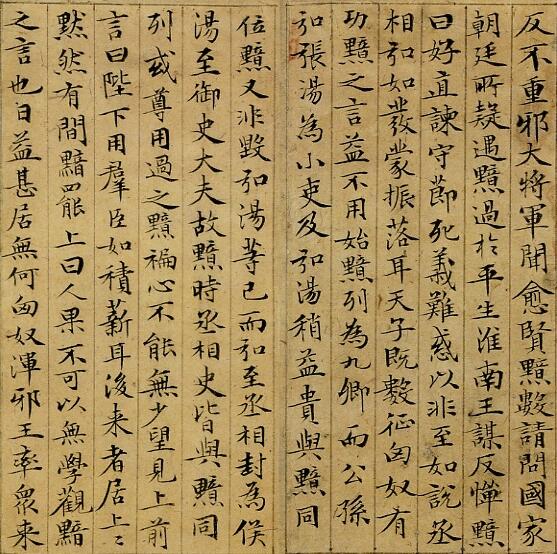 反不重邪大將軍聞愈賢黯數請問國家
朝廷所疑遇黯過於平生淮南王謀反憚黯
曰好直諫守節死義難惑以非至如說丞
相弘如發蒙振落耳天子既數征匈奴有
功黯之言益不用始黯列為九卿而公孫
弘張湯為小吏及弘湯稍益貴與黯同
位黯又非毀弘湯等已而弘至丞相封為侯
湯至御史大夫故黯時丞相史皆與黯同
列或尊用過之黯褊心不能無少望見上前
言曰陛下用羣臣如積薪耳後来者居上〻
黙然有間黯罷上曰人果不可以無學觀黯
之言也日益甚居無何匈奴渾邪王率眾来